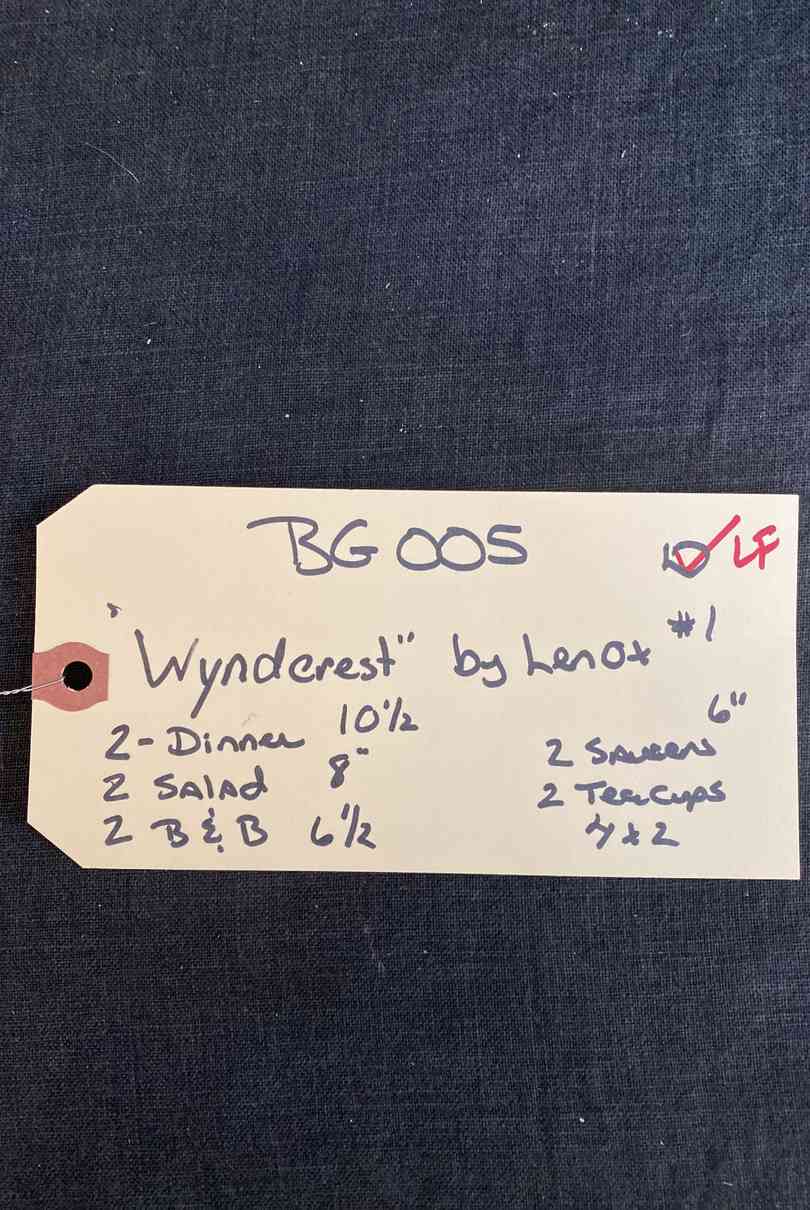 BG 005
LF
"Wyndcrest" by Lenox #1
2-Dinner 10½
2 Salad 8"
2 B & B 6½
6"
2 Saucers
2 Tea Cups
4 x 2